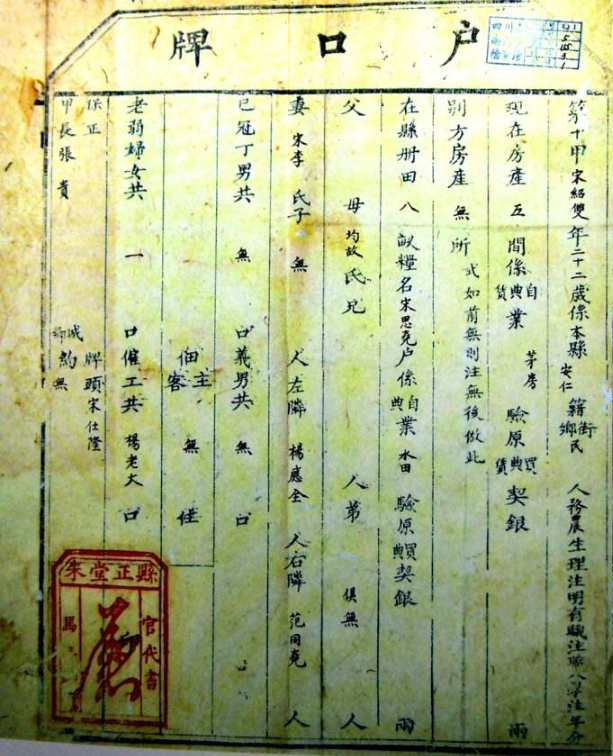 户口牌
第十甲宋紹雙年二十二歲係本縣安仁籍街鄉民 人務農生理注明有職注職八學注年分
現在房産五間係自典賃業 茅房 驗原買典賃契銀 兩
別方房産無所 式如前無則注無後倣此
在縣册田八畝糧名宋思克户係自典業 水田 驗原買典契銀 兩
父 母均故氏兄 人弟 俱無 人
妻宋李氏子無 人左隣 楊應全 人右隣 范同克 人
已冠丁男共無口義男共無口
主佃客無住
老弱婦女共一口僱工共楊老大口
保正 牌頭宋仕隆
甲長張貴 城鄉約無
縣正堂朱
官代書
馬